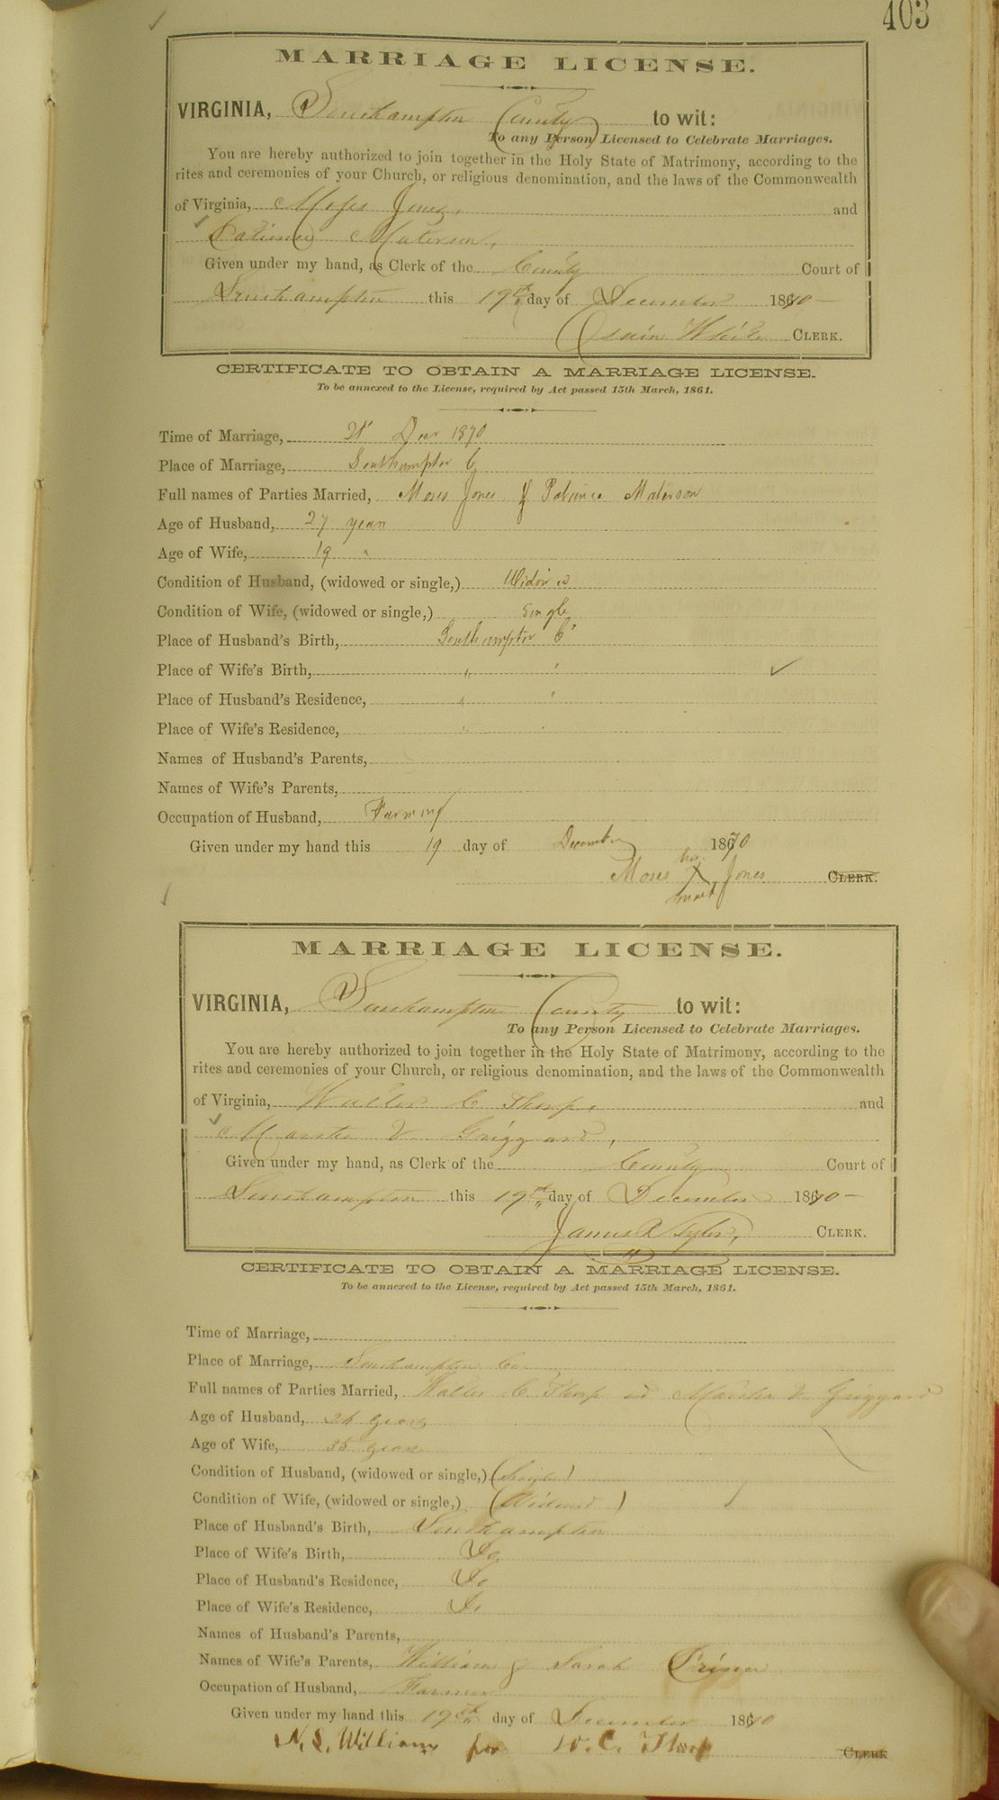 403
MARRIAGE LICENSE.
VIRGINIA, Southampton County to wit:
To any Person Licensed to Celebrate Marriages.
You are hereby authorized to join together in the Holy State of Matrimony, according to the
rites and ceremonies of your Church, or religious denomination, and the laws of the Commonwealth
of Virginia, Moses Jones, and
Patience
Given under my hand, as Clerk of the County Court of
Southampton this 19th day of December 1870
White CLERK.
CERTIFICATE TO OBTAIN A MARRIAGE LICENSE.
To be annexed to the License, required by Act passed 15th March, 1861.
Time of Marriage, 21 Decr 1870
Place of Marriage, Southampton Co
Full names of Parties Married, Moses Jones & Patience
Age of Husband, 27 years
Age of Wife, 19 "
Condition of Husband, (widowed or single,)
Condition of Wife, (widowed or single,) Single
Place of Husband's Birth, Southampton Co
Place of Wife's Birth, " "
Place of Husband's Residence, " "
Place of Wife's Residence, "
Names of Husband's Parents,
Names of Wife's Parents,
Occupation of Husband, Farming
Given under my hand this 19 day of December 1870
Moses his X mark Jones CLERK.
MARRIAGE LICENSE.
VIRGINIA, Southampton County to wit:
To any Person Licensed to Celebrate Marriages.
You are hereby authorized to join together in the Holy State of Matrimony, according to the
rites and ceremonies of your Church, or religious denomination, and the laws of the Commonwealth
of Virginia, Walter C Thorp, and
Martha V.
Given under my hand, as Clerk of the County Court of
Southampton this 19th day of December 1870
James R Tyler, CLERK.
CERTIFICATE TO OBTAIN A MARRIAGE LICENSE.
To be annexed to the License, required by Act passed 15th March, 1861.
Time of Marriage,
Place of Marriage, Southampton Co.
Full names of Parties Married, Walter C. Thorp and Martha V.
Age of Husband, years
Age of Wife, 35 years
Condition of Husband, (widowed or single,) (Single)
Condition of Wife, (widowed or single,) (Widowed)
Place of Husband's Birth, Southampton
Place of Wife's Birth, Do
Place of Husband's Residence, Do
Place of Wife's Residence, Do
Names of Husband's Parents,
Names of Wife's Parents, William & Sarah
Occupation of Husband, Farmer
Given under my hand this 19th day of December 1870
N. S. Williams for W. C. Thorp CLERK